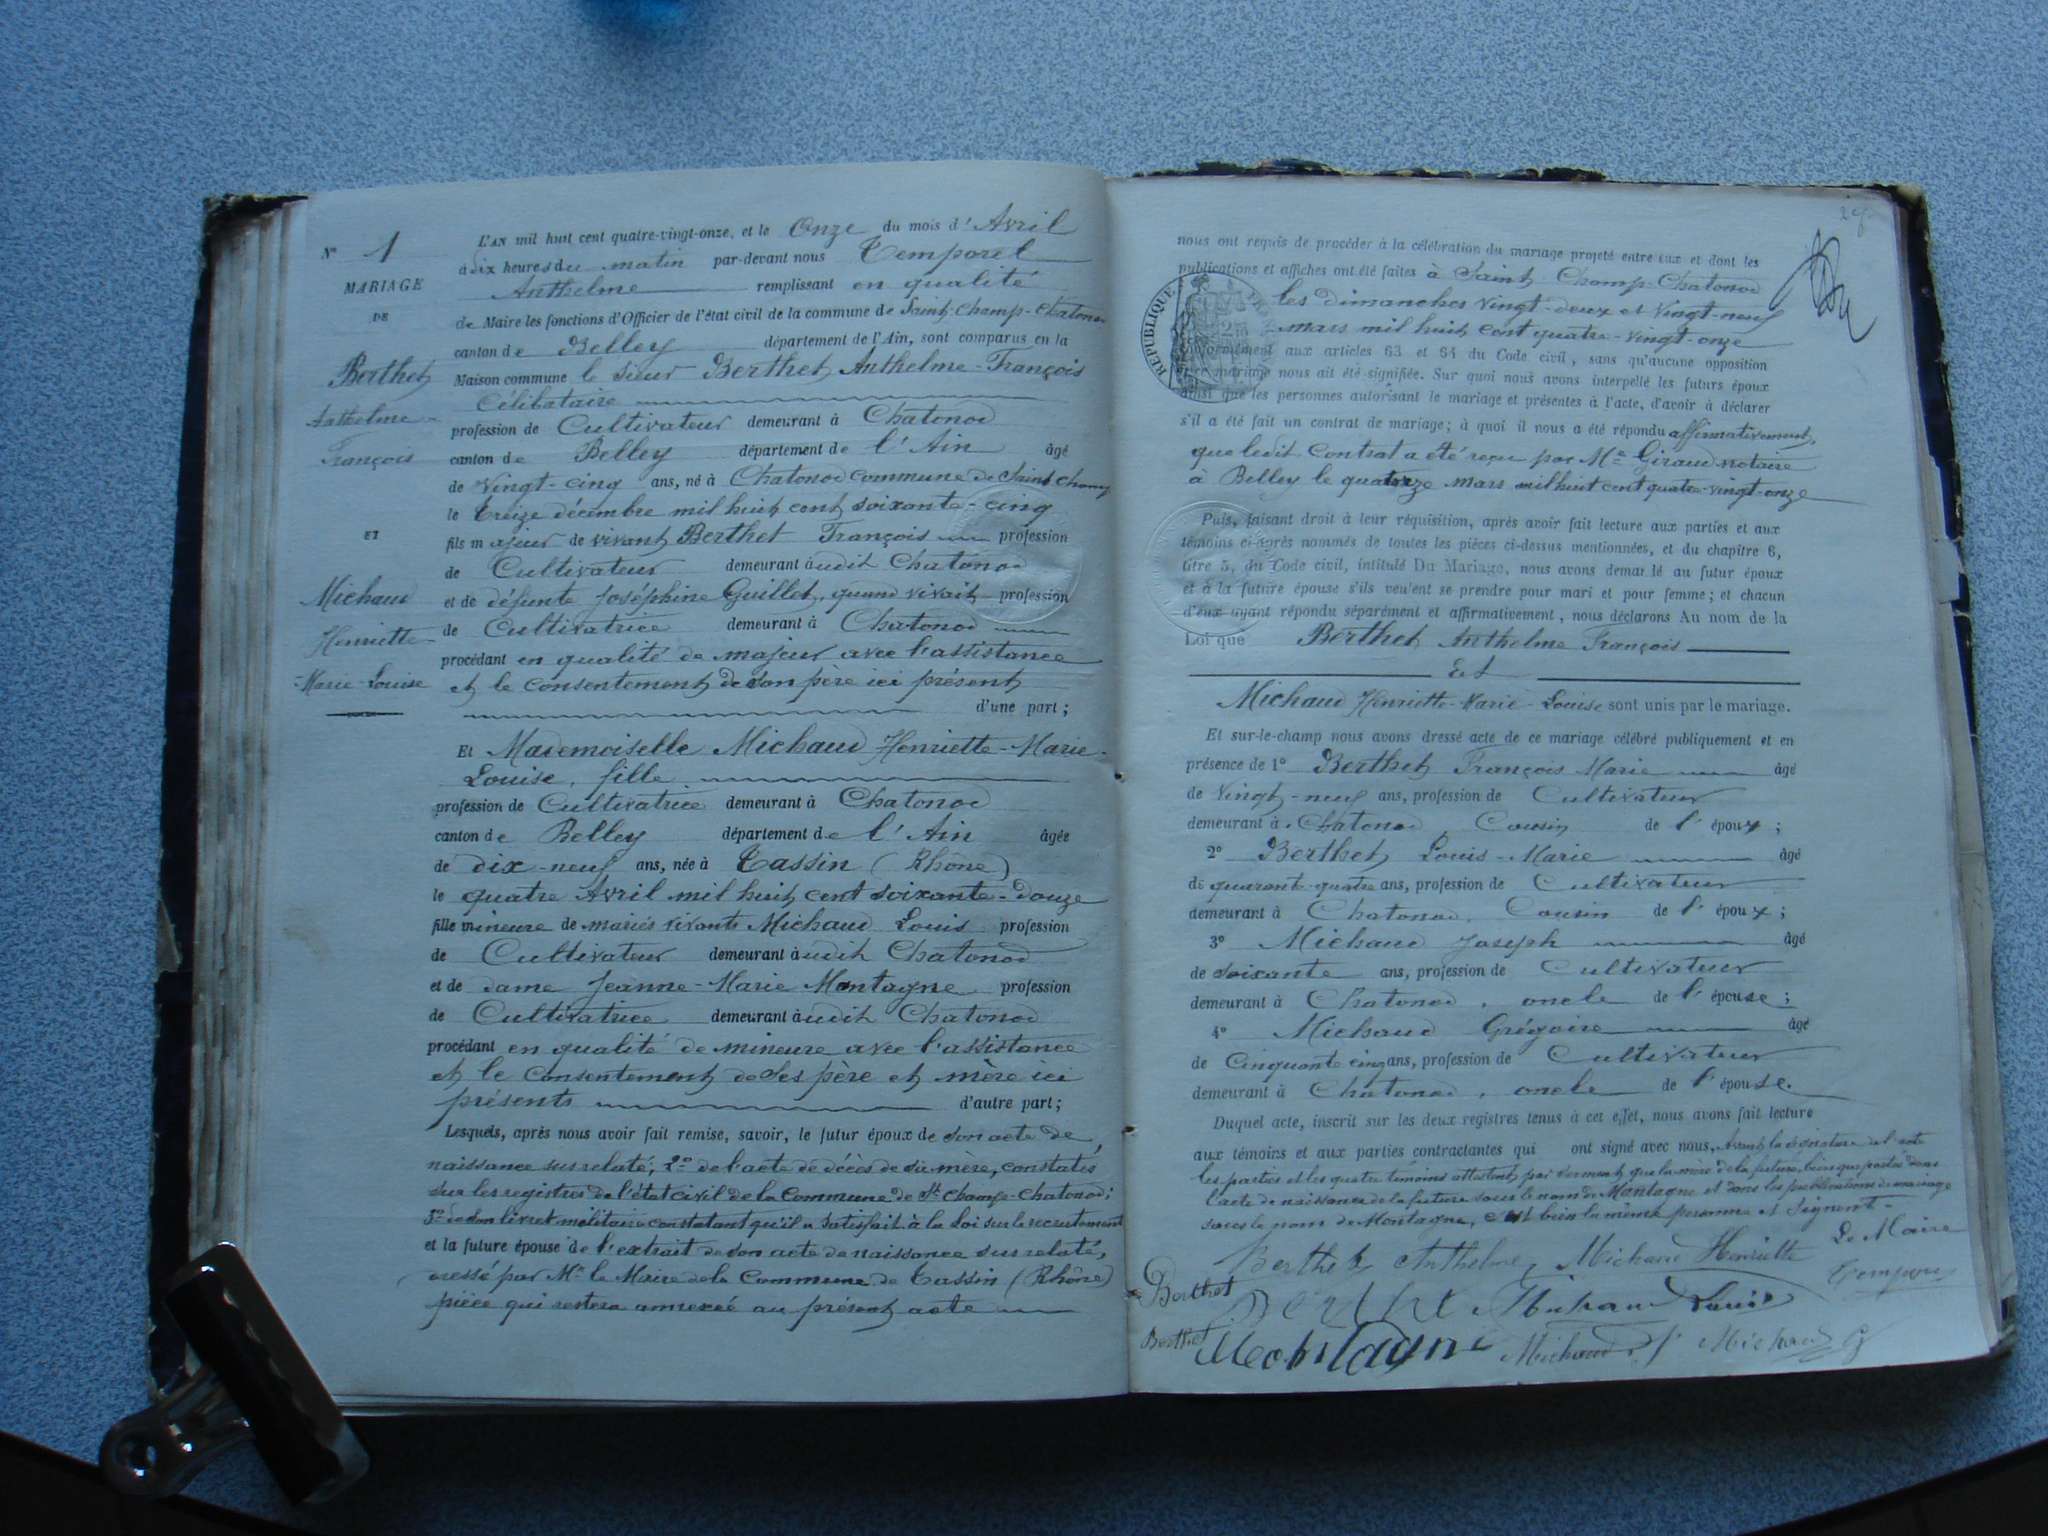 N° 1
MARIAGE
DE
Berthet
Anthelme
François
ET
Michaud
Henriette-
Marie-Louise
L'AN mil huit cent quatre-vingt-onze, et le Onze du mois d'Avril
à dix heures du matin par-devant nous Temporel
Anthelme remplissant en qualité
de Maire les fonctions d'Officier de l'état civil de la commune de Saint-Champ-Chatonod
canton de Belley département de l'Ain, sont comparus en la
Maison commune le sieur Berthet Anthelme-François
Célibataire
profession de Cultivateur demeurant à Chatonod
canton de Belley département de l'Ain âgé
de vingt-cinq ans, né à Chatonod commune de Saint Champ
le treize décembre mil huit cent soixante-cinq
fils majeur de vivant Berthet François profession
de Cultivateur demeurant audit Chatonod
et de défunte Joséphine Guillet, quand vivait profession
de Cultivatrice demeurant à Chatonod
procédant en qualité de majeur avec l'assistance
et le consentement de son père ici présent
d'une part;
Et Mademoiselle Michaud Henriette-Marie-
Louise, fille
profession de Cultivatrice demeurant à Chatonod
canton de Belley département de l'Ain âgée
de dix-neuf ans, née à Tassin (Rhône)
le quatre Avril mil huit cent soixante-douze
fille mineure de mariés vivants Michaud Louis profession
de Cultivateur demeurant audit Chatonod
et de dame Jeanne-Marie Montagne profession
de Cultivatrice demeurant audit Chatonod
procédant en qualité de mineure avec l'assistance
et le consentement de ses père et mère ici
présents d'autre part;
Lesquels, après nous avoir fait remise, savoir, le futur époux de son acte de
naissance sus relaté, 2° de l'acte de décès de sa mère, constatés
sur les registres de l'état civil de la Commune de St Champ-Chatonod;
3° de son livret militaire constatant qu'il a satisfait à la loi sur le recrutement
et la future épouse de l'extrait de son acte de naissance sus relaté,
dressé par Mr le Maire de la Commune de Tassin (Rhône)
pièce qui restera annexée au présent acte
nous ont requis de procéder à la célébration du mariage projeté entre eux et dont les
publications et affiches ont été faites à Saint Champ-Chatonod
les dimanches vingt-deux et vingt-neuf
mars mil huit cent quatre-vingt-onze
RÉPUBLIQUE
conformément aux articles 63 et 64 du Code civil, sans qu'aucune opposition
mariage nous ait été signifiée. Sur quoi nous avons interpellé les futurs époux
ainsi que les personnes autorisant le mariage et présentes à l'acte, d'avoir à déclarer
s'il a été fait un contrat de mariage; à quoi il nous a été répondu affirmativement,
que ledit Contrat a été reçu par Me Giraud notaire
à Belley le quatorze mars mil huit cent quatre-vingt-onze
Puis, faisant droit à leur réquisition, après avoir fait lecture aux parties et aux
témoins ci-après nommés de toutes les pièces ci-dessus mentionnées, et du chapitre 6,
titre 5, du Code civil, intitulé Du Mariage, nous avons demandé au futur époux
et à la future épouse s'ils veulent se prendre pour mari et pour femme; et chacun
d'eux ayant répondu séparément et affirmativement, nous déclarons Au nom de la
Loi que Berthet Anthelme François
Et
Michaud Henriette-Marie-Louise sont unis par le mariage.
Et sur-le-champ nous avons dressé acte de ce mariage célébré publiquement et en
présence de 1° Berthet François Marie âgé
de vingt-neuf ans, profession de Cultivateur
demeurant à Chatonod, Cousin de l'époux;
2° Berthet Louis-Marie âgé
de quarante-quatre ans, profession de Cultivateur
demeurant à Chatonod, Cousin de l'époux;
3° Michaud Joseph âgé
de soixante ans, profession de Cultivateur
demeurant à Chatonod, oncle de l'épouse;
4° Michaud Grégoire âgé
de Cinquante cinq ans, profession de Cultivateur
demeurant à Chatonod, oncle de l'épouse.
Duquel acte, inscrit sur les deux registres tenus à cet effet, nous avons fait lecture
aux témoins et aux parties contractantes qui ont signé avec nous, Avant la signature de l'acte
les parties et les quatre témoins attestent par serment que la mère de la future, bien que portée dans
l'acte de naissance de la future sous le nom de Montagne et dans les publications de mariage
sous le nom de Montagne, c'est bien la même personne et signent.
Berthet Anthelme Michaud Henriette Le Maire
Berthet Berthet Michaud Louis Temporel
Berthet Montagne Michaud J Michaud G